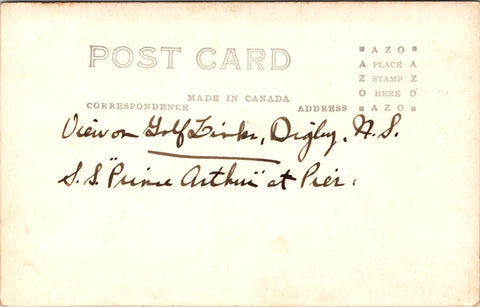 POST CARD
■ A Z O ■
A PLACE A
Z STAMP Z
O HERE O
■ A Z O ■
MADE IN CANADA
CORRESPONDENCE ADDRESS
View on Golf Links, Digby, N.S.
S.S. "Prince Arthur" at Pier.